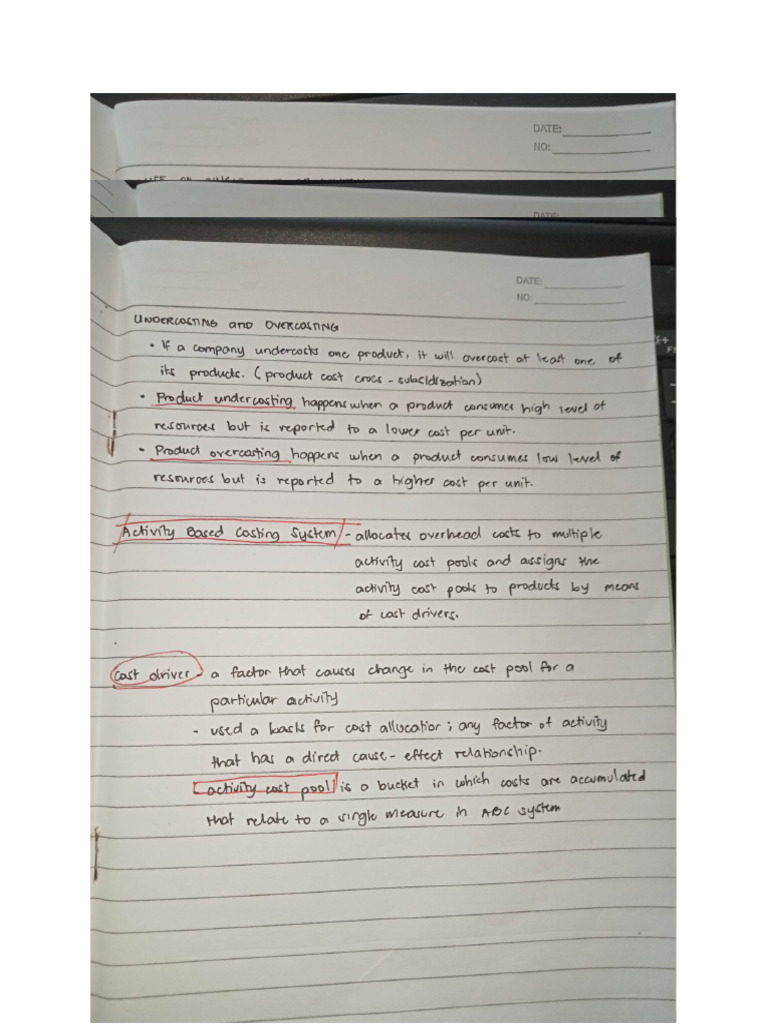 DATE:
NO:
DATE:
DATE:
NO:
UNDERCOSTING AND OVERCOSTING
• If a company undercosts one product, it will overcost at least one of
its products. (product cost cross-subsidization)
• Product undercosting happens when a product consumes high level of
resources but is reported to a lower cost per unit.
• Product overcosting happens when a product consumes low level of
resources but is reported to a higher cost per unit.
Activity Based Costing System - allocates overhead costs to multiple
activity cost pools and assigns the
activity cost pools to products by means
of cost drivers.
Cost driver - a factor that causes change in the cost pool for a
particular activity
- used a basis for cost allocation; any factor of activity
that has a direct cause-effect relationship.
activity cost pool is a bucket in which costs are accumulated
that relate to a single measure in ABC system